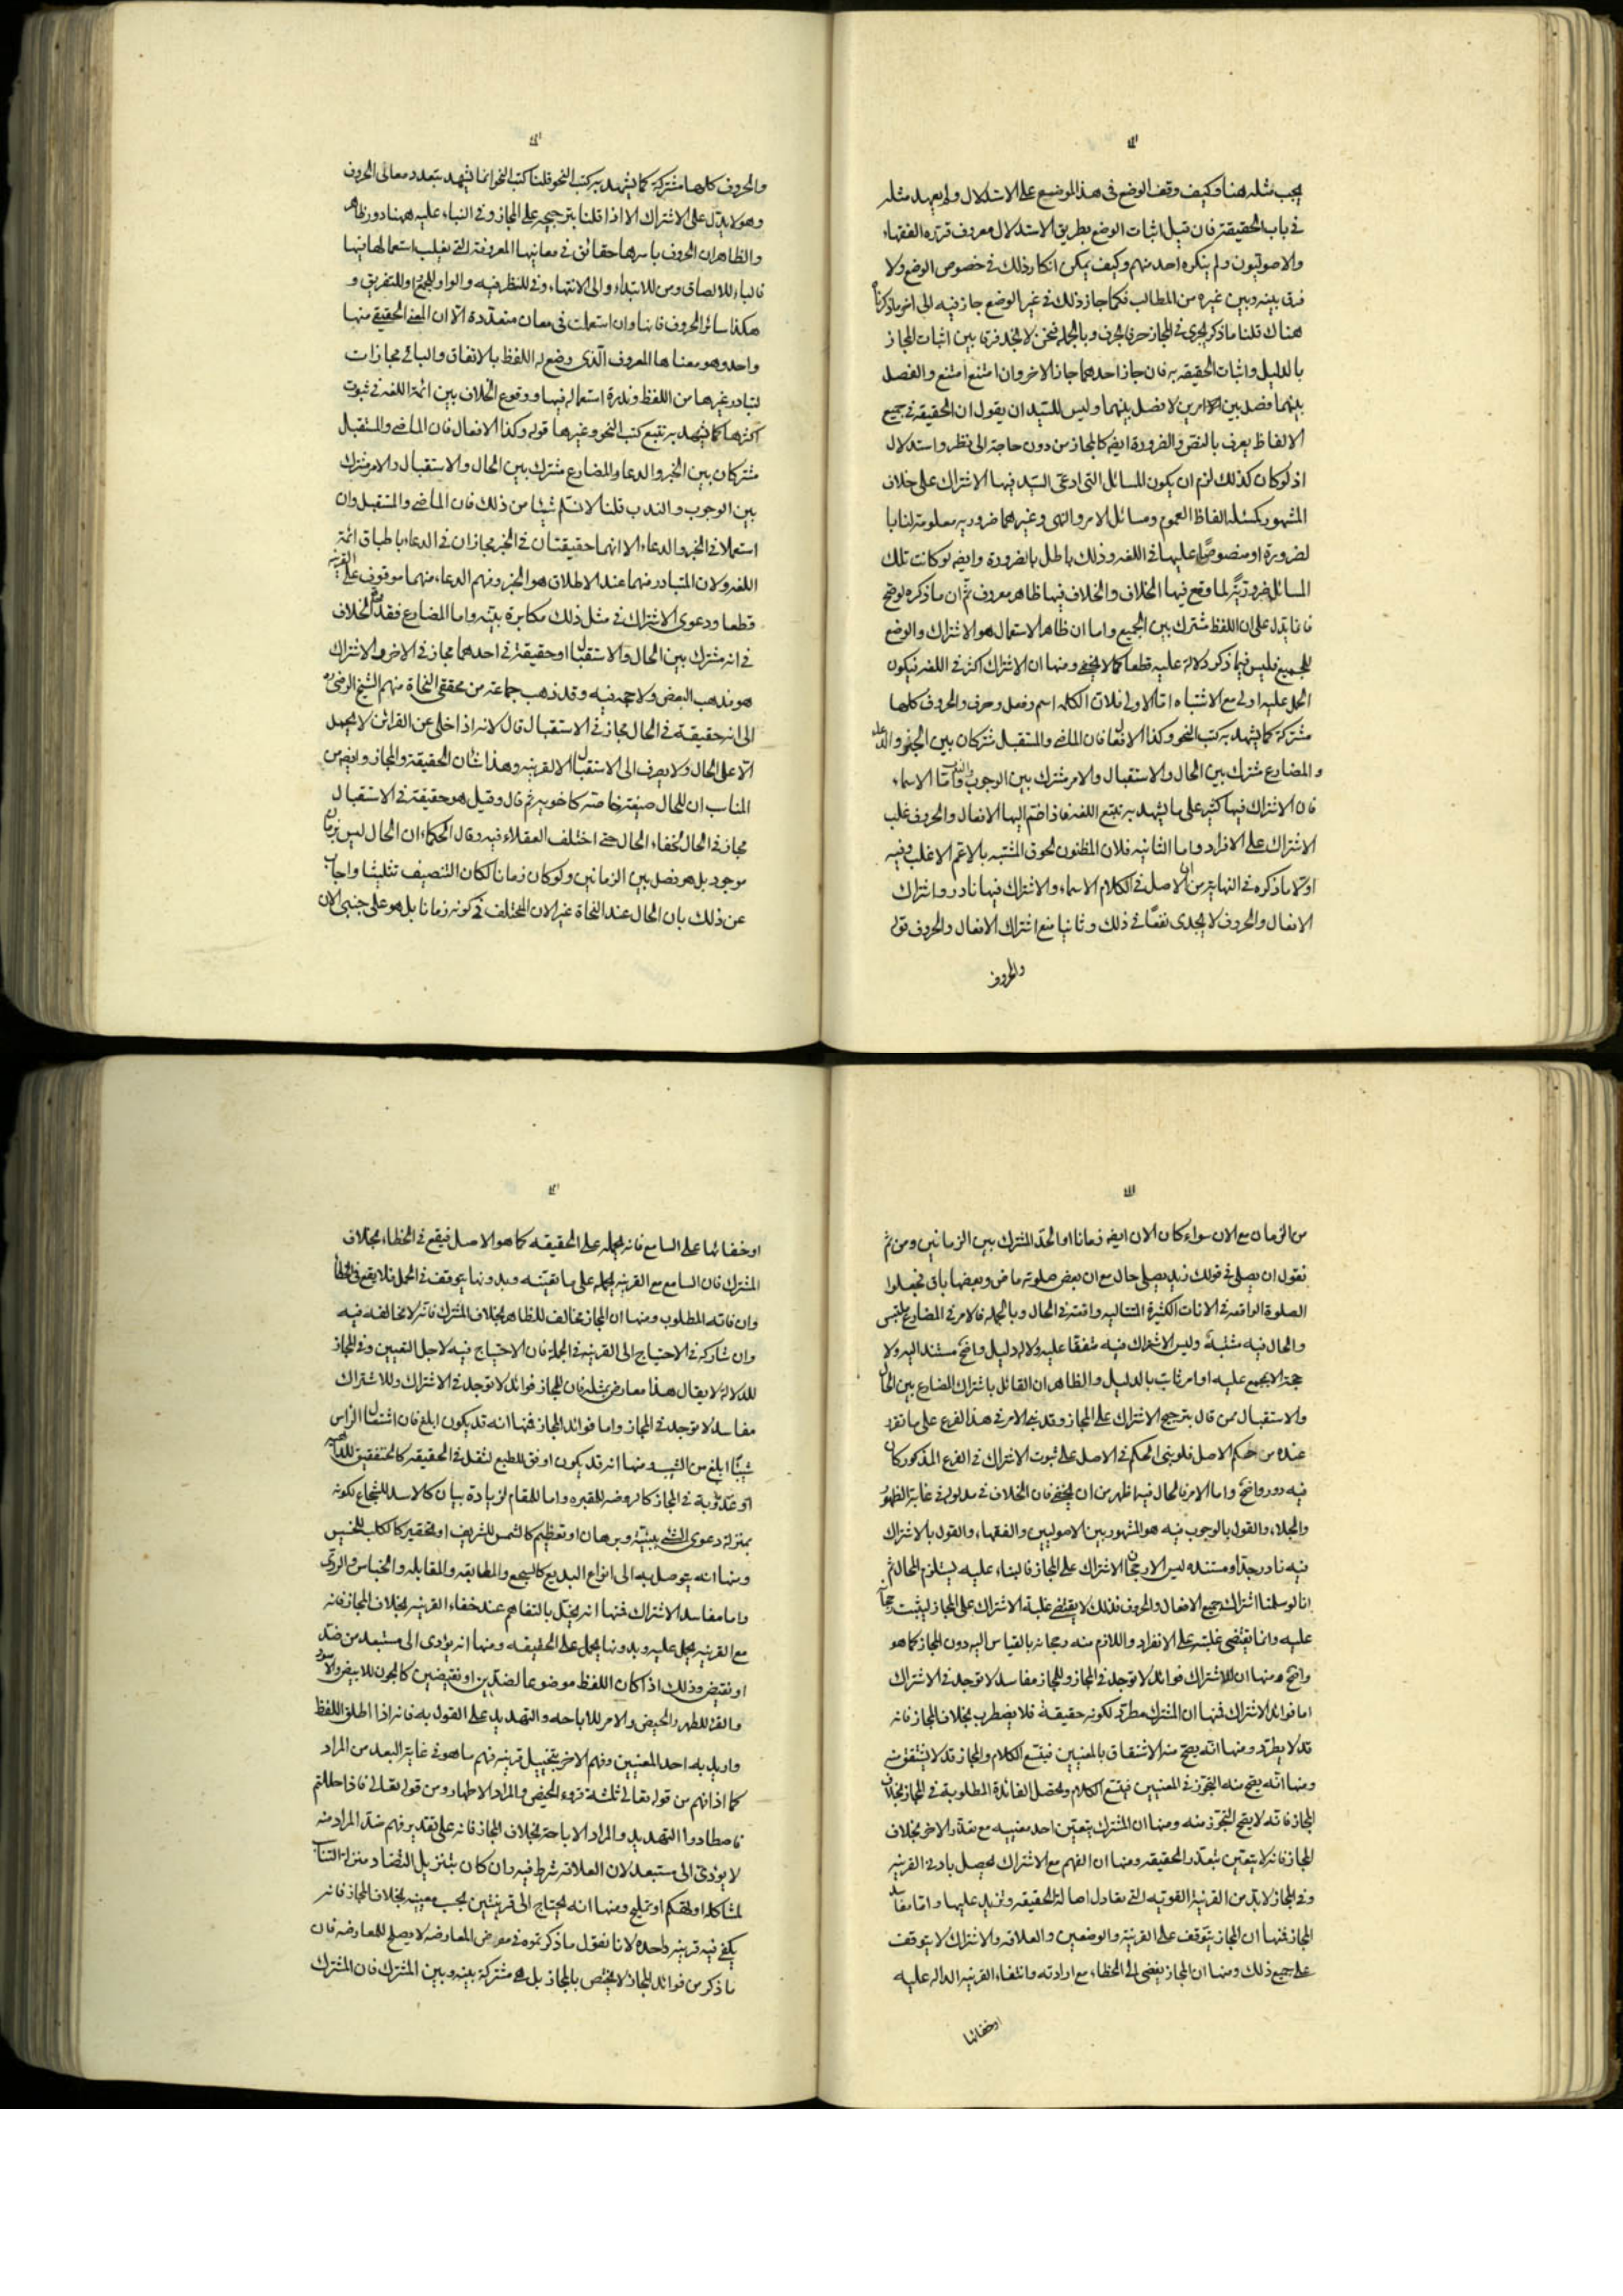 يجب مثله هنا وكيف وقف الوضع فى هذا الموضع على الاستدلال ولم يعهد مثله
فى باب الحقيقة فان قيل اثبات الوضع بطريق الاستدلال معروف قرره الفقهاء
والاصوليون ولم ينكره احد منهم وكيف يمكن انكار ذلك فى خصوص الوضع ولا
فرق بينه وبين غيره من المطالب فكما جاز ذلك فى غير الوضع جاز فيه الى اخر ما ذكرنا
هناك قلنا ما ذكر يجرى فى المجاز حرفا بحرف وبالجملة فنحن لا نجد فرقا بين اثبات المجاز
بالدليل واثبات الحقيقه به فان جاز احدهما جاز الاخر وان امتنع امتنع والفصل
بينهما فصل بين الامرين لا فصل بينهما وليس للسيد ان يقول ان الحقيقه فى جميع
الالفاظ يعرف بالنقل والضرورة ايضا كالمجاز من دون حاجة الى نظر واستدلال
اذ لو كان كذلك لزم ان يكون المسائل التى ادعى السيد فيها الاشتراك على خلاف
المشهور كمسئلة الفاظ العموم ومسائل الامر والنهى وغيرهما ضروريه معلومة لنا با
لضرورة او منصوصا عليها فى اللغه وذلك باطل بالضرورة وايضا لو كانت تلك
المسائل ضرورية لما وقع فيها الخلاف والخلاف فيها ظاهر معروف ثم ان ما ذكره لو صح
فانما يدل على ان اللفظ مشترك بين الجميع واما ان ظاهر الاستعمال هو الاشتراك والوضع
للجميع فليس فيما ذكر دلالة عليه قطعا كما لا يخفى ومنها ان الاشتراك اكثر فى اللغه فيكون
الحمل عليه اولى مع الاشتباه اما الاولى فلان الكلمه اسم وفعل وحرف والحروف كلها
مشتركة كما يشهد به كتب النحو وكذا الافعال فان الماضى والمستقبل مشتركان بين الخبر والدعاء
والمضارع مشترك بين الحال والاستقبال والامر مشترك بين الوجوب والندب واما الاسماء
فان الاشتراك فيها كثير على ما يشهد به تتبع اللغه فاذا ضم اليها الافعال والحروف غلب
الاشتراك على الافراد واما الثانيه فلان المظنون لحوق المشتبه بالاعم الاغلب وفيه
اولا ما ذكره فى النهاية من ان الاصل فى الكلام الاسماء والاشتراك فيها نادر واشتراك
الافعال والحروف لا يجدى نفعا فى ذلك وثانيا منع اشتراك الافعال والحروف قوله
والحروف
والحروف كلها مشتركة كما يشهد به كتب النحو قلنا كتب النحو انما يشهد بتعدد معانى الحروف
وهو لا يدل على الاشتراك الا اذا قلنا بترجيحه على المجاز وفى البناء عليه ههنا دور ظاهر
والظاهر ان الحروف باسرها حقائق فى معانيها المعروفة التى يغلب استعمالها فيها
فالباء للالصاق ومن للابتداء والى للانتهاء وفى للظرفيه والواو للجمع واللتفريق و
هكذا سائر الحروف فانها وان استعملت فى معان متعددة الا ان المعنى الحقيقى منها
واحد وهو معناها المعروف الذى وضع له اللفظ بالاتفاق والباقى مجازات
لتبادر غيرها من اللفظ وندرة استعماله فيها ووقوع الخلاف بين ائمة اللغه فى ثبوت
اكثرها كما يشهد به تتبع كتب النحو وغيرها قوله وكذا الافعال فان الماضى والمستقبل
مشتركان بين الخبر والدعا والمضارع مشترك بين الحال والاستقبال والامر مشترك
بين الوجوب والندب قلنا لا نسلم شيئا من ذلك فان الماضى والمستقبل وان
استعملا فى الخبر والدعاء الا انهما حقيقتان فى الخبر مجازان فى الدعاء باطباق ائمة
اللغه ولان المتبادر منهما عند الاطلاق هو الخبر وفهم الدعاء منهما موقوف على القرينه
قطعا ودعوى الاشتراك فى مثل ذلك مكابرة بينه واما المضارع فقد وقع الخلاف
فى انه مشترك بين الحال والاستقبال او حقيقة فى احدهما مجاز فى الاخر والاشتراك
هو مذهب البعض ولا حجه فيه وقد ذهب جماعة من محققى النحاة منهم الشيخ الرضى ره
الى انه حقيقة فى الحال مجاز فى الاستقبال قال لانه اذا خلى عن القرائن لا يحمل
الا على الحال ولا يصرف الى الاستقبال الا لقرينه وهذا شان الحقيقة والمجاز وايضا من
المناسب ان للحال صيغة خاصة كما خويه ثم قال وقيل هو حقيقة فى الاستقبال
مجاز فى الحال لخفاء الحال حتى اختلف العقلاء فيه وقال الحكماء ان الحال ليس بزمان
موجود بل هو فصل بين الزمانين ولو كان زمانا لكان التنصيف تثليثا واجاب
عن ذلك بان الحال عند النحاة غير الان المختلف فى كونه زمانا بل هو على جنبى الان
من الزمان مع الان سواء كان الان ايضا زمانا او الحد المشترك بين الزمانين ومن ثم
نقول ان يصلى فى قولك زيد يصلى حال مع ان بعض صلوته ماض وبعضها باق فجعلوا
الصلوة الواقعه فى الانات الكثيرة المتتاليه واقعة فى الحال وبالجمله فالامر فى المضارع ملتبس
والحال فيه مشتبه وليس الاشتراك فيه متفقا عليه ولا له دليل واضح مستند اليه ولا
حجة الا بجمع عليه او امر ثابت بالدليل والظاهر ان القائل باشتراك المضارع بين الحال
والاستقبال ممن قال بترجيح الاشتراك على المجاز وقد بنى الامر فى هذا الفرع على ما تقرر
عنده من حكم الاصل فلو بنى الحكم فى الاصل على ثبوت الاشتراك فى الفرع المذكور كان
فيه دور واضح واما الامر فالحال فيه اظهر من ان يخفى فان الخلاف فى مدلوله فى غاية الظهور
والجلاء والقول بالوجوب فيه هو المشهور بين الاصوليين والفقهاء والقول بالاشتراك
فيه نادر جدا ومستنده ليس الا رجحان الاشتراك على المجاز فالبناء عليه يستلزم المحال ثم
انا لو سلمنا اشتراك جميع الافعال والحروف فذلك لا يقتضى غلبة الاشتراك على المجاز ليثبت رجحانه
عليه وانما يقتضى غلبته على الانفراد واللازم منه رجحانه بالقياس اليه دون المجاز كما هو
واضح ومنها ان للاشتراك فوائد لا توجد فى المجاز وللمجاز مفاسد لا توجد فى الاشتراك
اما فوائد الاشتراك فمنها ان المشترك مطرد لكونه حقيقة فلا يضطرب بخلاف المجاز فانه
قد لا يطرد ومنها انه يصح منه الاشتقاق بالمعنيين فيتسع الكلام والمجاز قد لا يشتق منه
ومنها انه يصح منه التجوز فى المعنيين فيتسع الكلام ويحصل الفائدة المطلوبة فى المجاز بخلاف
المجاز فانه لا يصح التجوز منه ومنها ان المشترك يتعين احد معنييه مع تعذر الاخر بخلاف
المجاز فانه لا يتعين بتعذر الحقيقه ومنها ان الفهم مع الاشتراك يحصل بادنى القرينه
وفى المجاز لابد من القرينة القويه التى تعادل اصالة الحقيقه وتزيد عليها واما مفاسد
المجاز فمنها ان المجاز يتوقف على القرينة والوضعين والعلاقه والاشتراك لا يتوقف
على جميع ذلك ومنها ان المجاز يفضى الى الخطاء مع ارادته وانتفاء القرينه الداله عليه
او خفائها
او خفائها على السامع فانه يحمله على الحقيقه كما هو الاصل فيقع فى الخطاء بخلاف
المشترك فان السامع مع القرينه يحمله على ما تعينه وبدونها يتوقف فى الحمل فلا يقع فى الخطأ
وان فاته المطلوب ومنها ان المجاز مخالف للظاهر بخلاف المشترك فانه لا مخالفه فيه
وان شاركه فى الاحتياج الى القرينه فى الجمله فان الاحتياج فيه لاجل التعيين وفى المجاز
للدلالة لا يقال هذا معارض بمثله فان للمجاز فوائد لا توجد فى الاشتراك وللاشتراك
مفاسد لا توجد فى المجاز واما فوائد المجاز فمنها انه قد يكون ابلغ فان اشتعل الراس
شيبا ابلغ من الشيب ومنها انه قد يكون اوفق للطبع لثقل فى الحقيقه كالخنفقيق للداهيه
او عذوبة فى المجاز كالروضه للمقبره واما للمقام لزيادة بيان كالاسد للشجاع لكونه
بمنزلة دعوى الشئ ببينة وبرهان او تعظيم كالشمس للشريف او تحقير كالكلب للخسيس
ومنها انه يتوصل به الى انواع البديع كالسجع والمطابقه والمقابله والجناس والروى
واما مفاسد الاشتراك فمنها انه يختل بالتفاهم عند خفاء القرينه بخلاف المجاز فانه
مع القرينه يحمل عليه وبدونها يحمل على الحقيقه ومنها انه يؤدى الى مستبعد من ضد
او نقيض وذلك اذا كان اللفظ موضوعا لضدين او نقيضين كالجون للابيض والاسود
والقرء للطهر والحيض والامر للاباحه والتهديد على القول به فانه اذا اطلق اللفظ
واريد به احد المعنيين وفهم الاخر بتخييل قرينه فهم ما هو فى غاية البعد من المراد
كما اذا فهم من قوله تعالى ثلثة قروء الحيض والمراد الاطهار ومن قوله تعالى فاذا حللتم
فاصطادوا التهديد والمراد الاباحة بخلاف المجاز فانه على تقدير فهم ضد المراد منه
لا يؤدى الى مستبعد لان العلاقه شرط فيه وان كان بتنزيل التضاد منزلة التناسب
لمشاكله او تهكم او تمليح ومنها انه يحتاج الى قرينتين بحسب معنييه بخلاف المجاز فانه
يكفى فيه قرينه واحده لانا نقول ما ذكرتموه فى معرض المعارضه لا يصلح للمعارضه فان
ما ذكر من فوائد المجاز لا يختص بالمجاز بل هى مشتركة بينه وبين المشترك فان المشترك